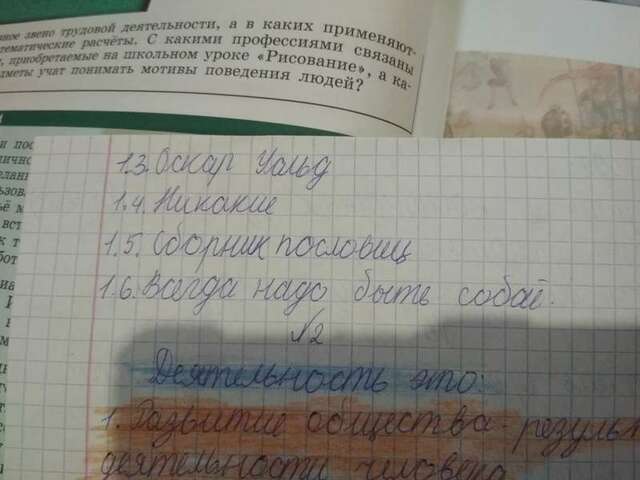 ное звено трудовой деятельности, а в каких применяют-
тематические расчёты. С какими профессиями связаны
, приобретаемые на школьном уроке «Рисование», а ка-
дметы учат понимать мотивы поведения людей?
1.3. Оскар Уальд
1.4. Никакие
1.5. Сборник пословиц
1.6. Всегда надо быть собой.
№2
Деятельность это:
1. Развитие общества - резуль
деятельности человека